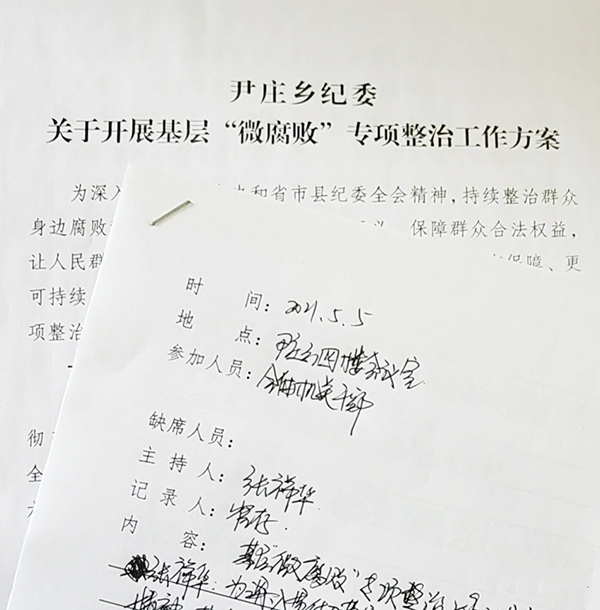 尹庄乡纪委
关于开展基层“微腐败”专项整治工作方案
为深入 和省市县纪委全会精神，持续整治群众
身边腐败 保障群众合法权益，
让人民群 保障、更
可持续
项整治
彻
全
时 间：2021.5.5
地 点： 四楼会议室
参加人员：全体机关干部
缺席人员：
主 持 人：张祥华
记 录 人：
内 容：基层“微腐败”专项整治
张祥华：为深入贯彻
精神